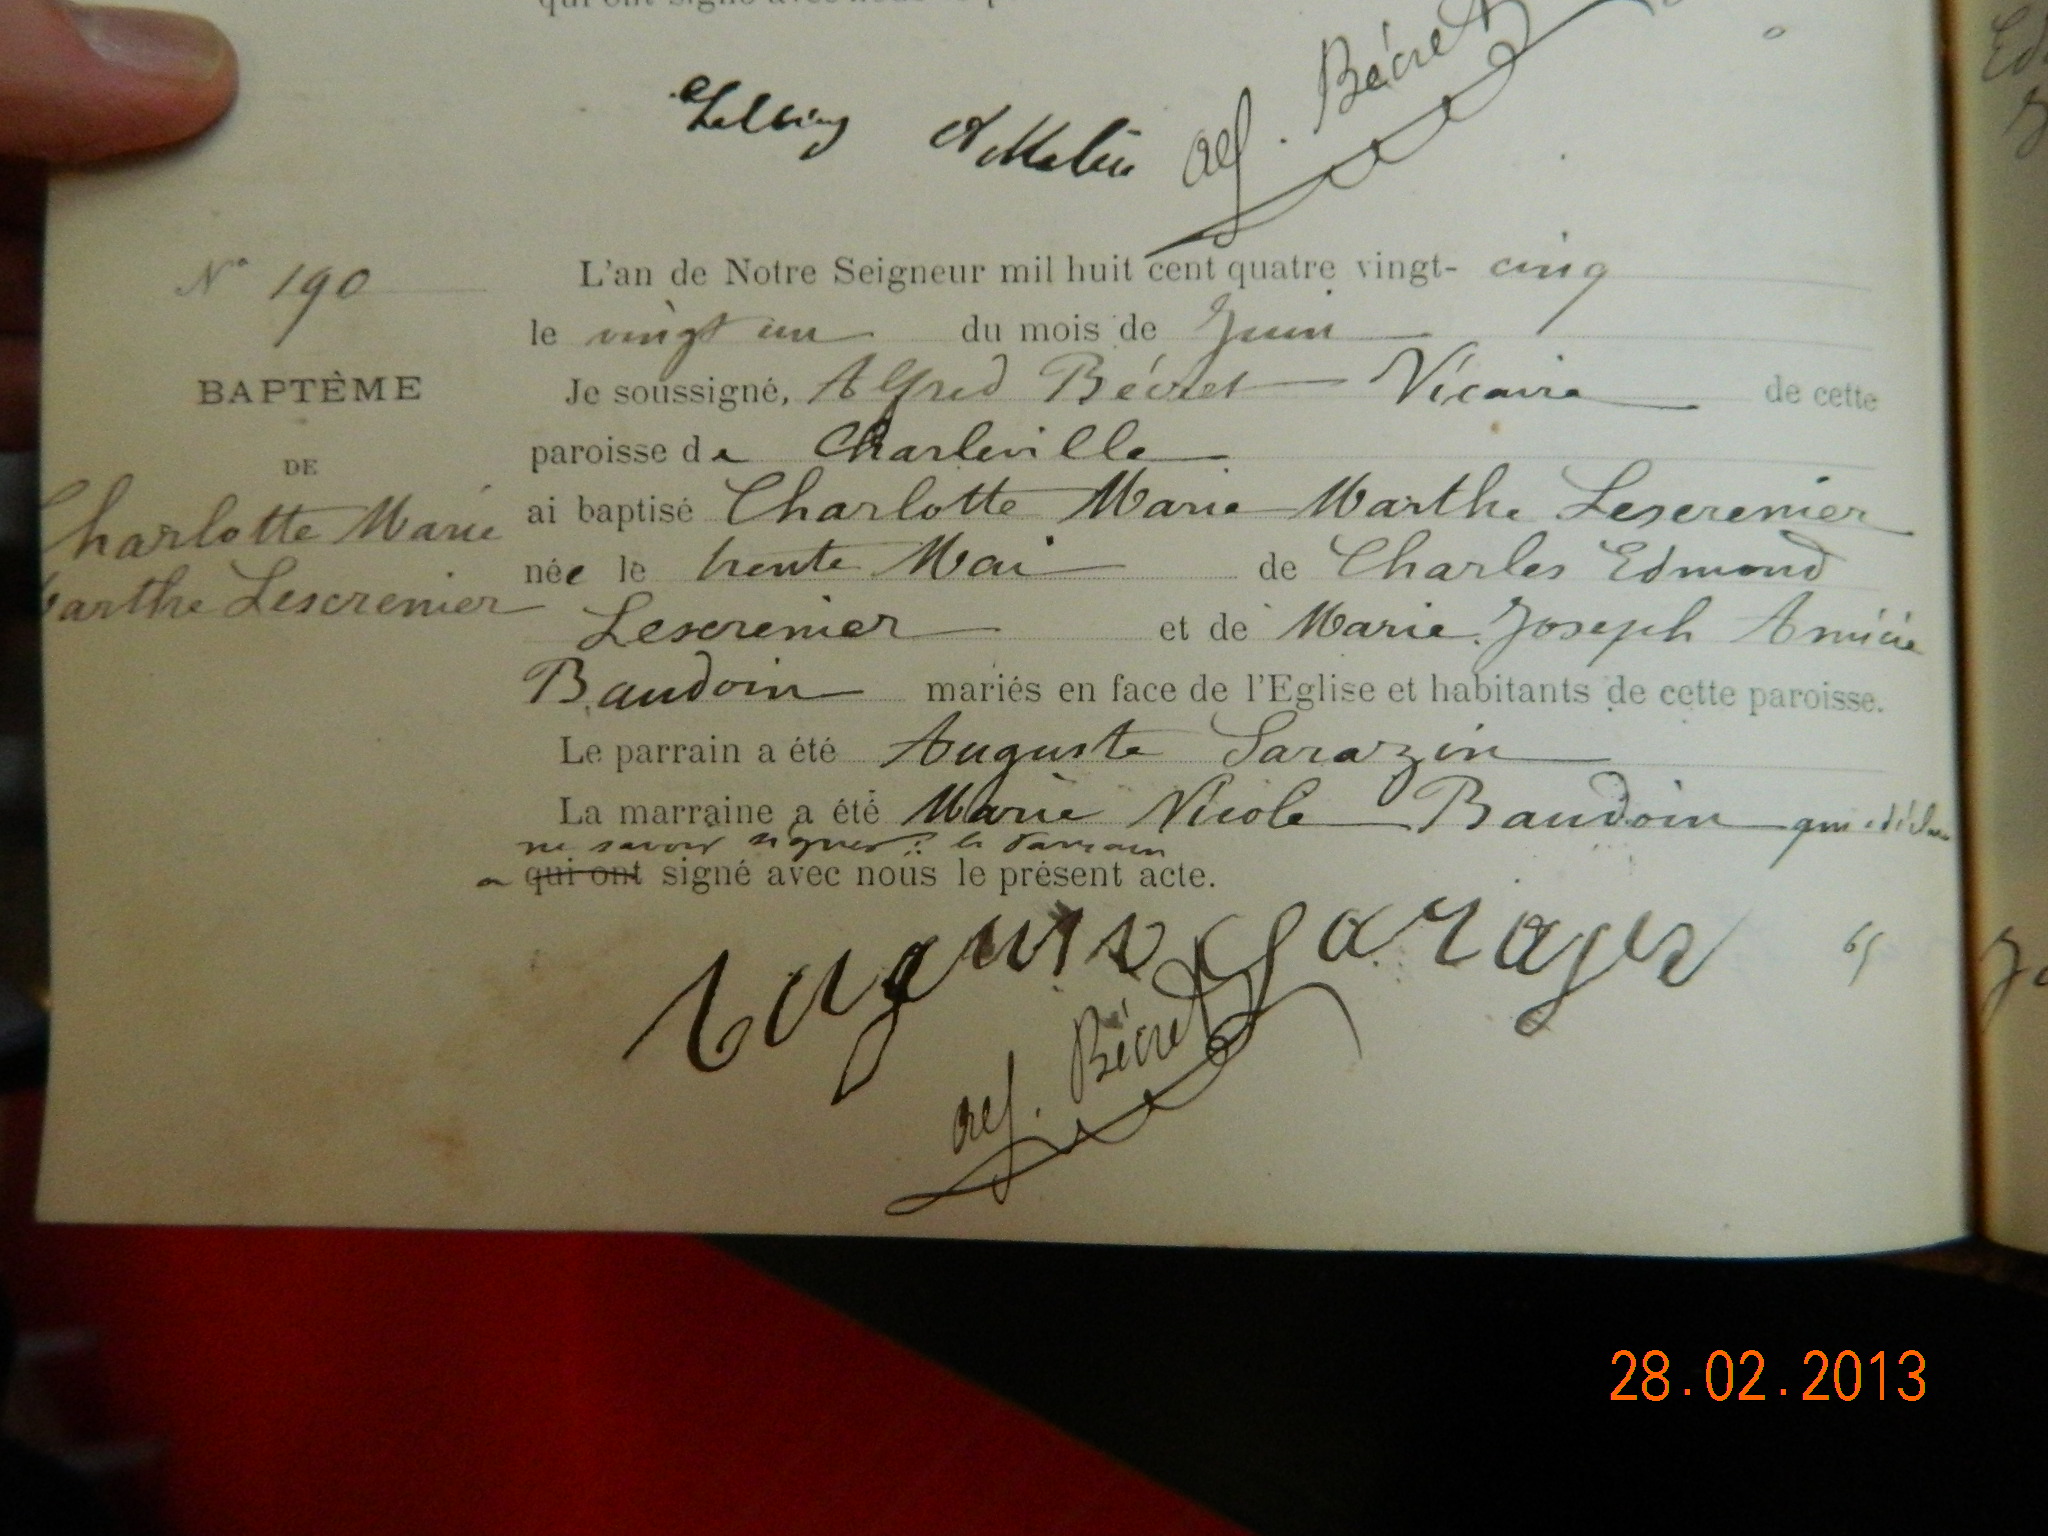 qui ont signé avec nous le p
alf. Bécret
N° 190
L'an de Notre Seigneur mil huit cent quatre vingt- cinq
le vingt un du mois de Juin
BAPTÊME
Je soussigné, Alfred Bécret Vicaire de cette
DE
paroisse de Charleville
Charlotte Marie
Marthe Lescrenier
ai baptisé Charlotte Marie Marthe Lescrenier
née le trente Mai de Charles Edmond
Lescrenier et de Marie Joseph Amicie
Baudoin mariés en face de l'Eglise et habitants de cette paroisse.
Le parrain a été Auguste Sarazin
La marraine a été Marie Nicole Baudoin qui a déclaré
ne savoir signer le Parrain
a qui ont signé avec nous le présent acte.
65
alf. Bécret
28.02.2013